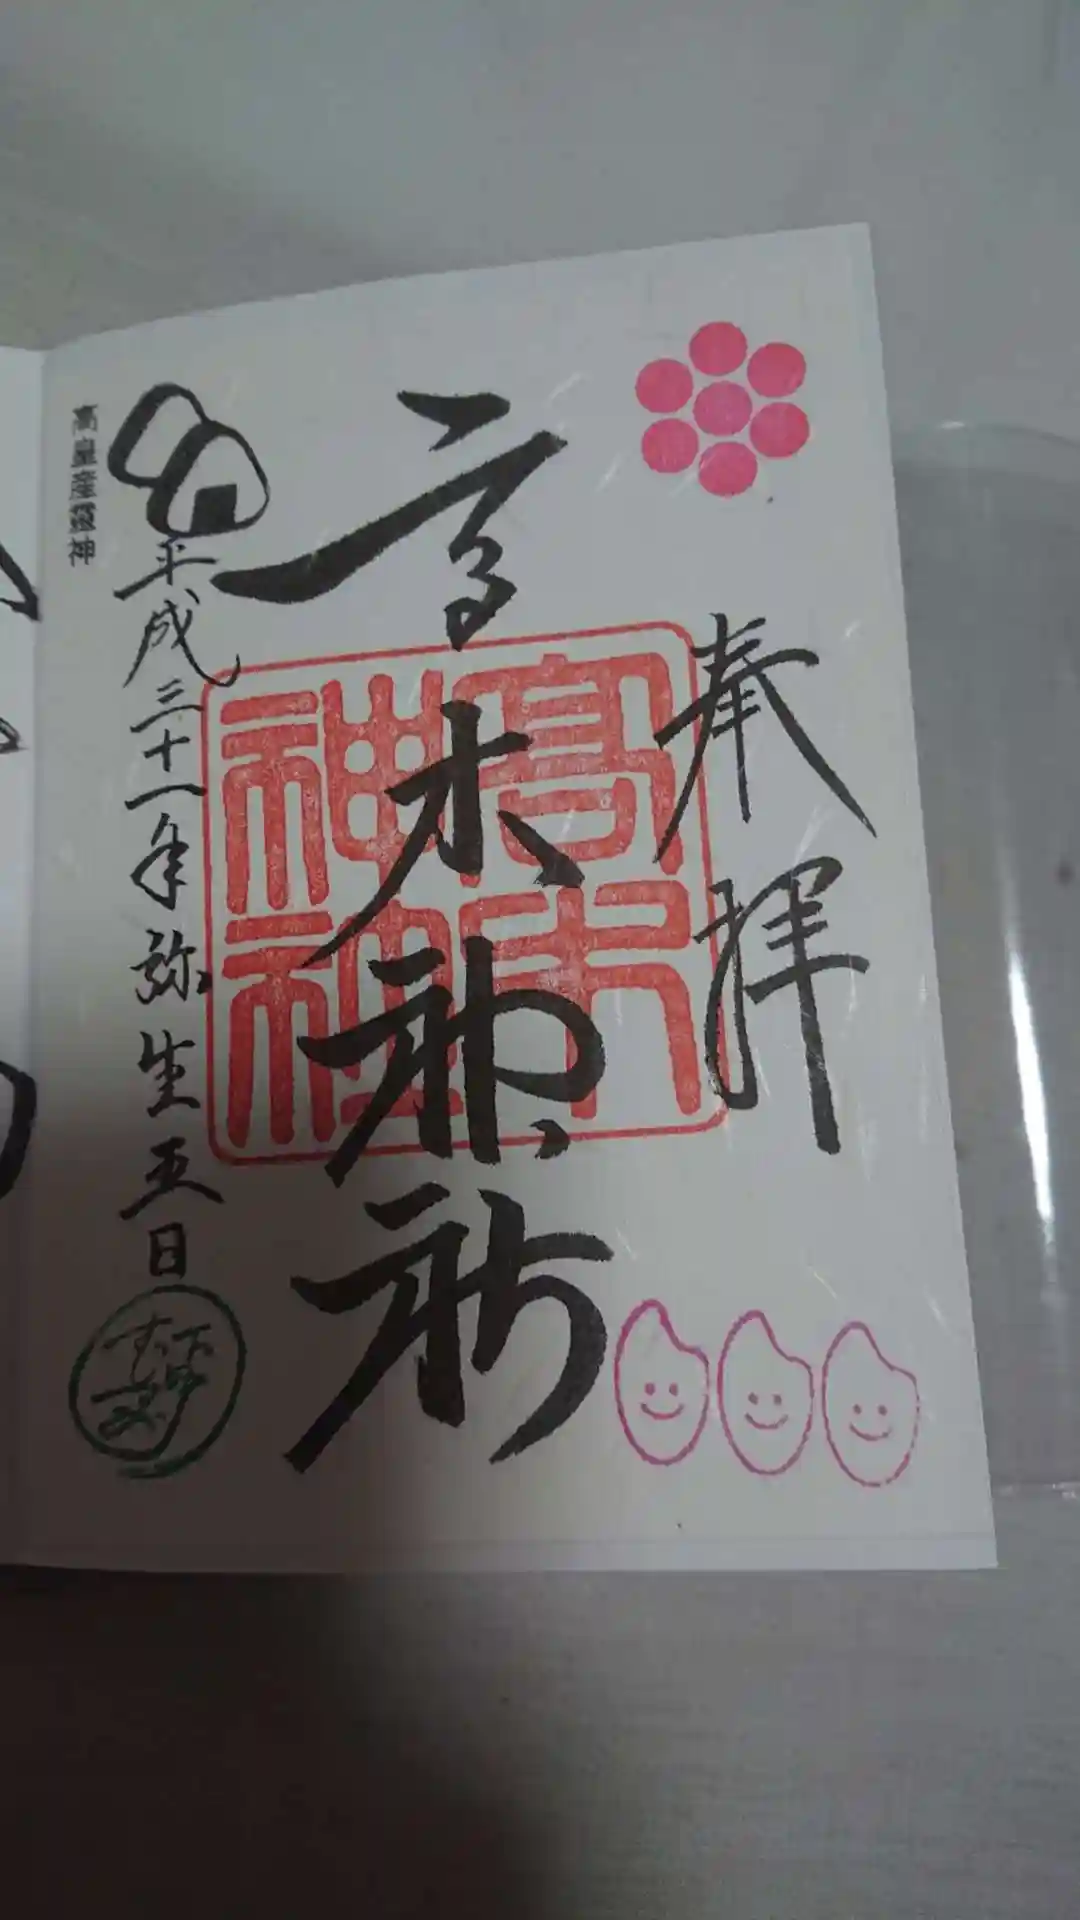 奉拝
高木神社
高木神社
平成三十一年弥生五日
高皇産靈神